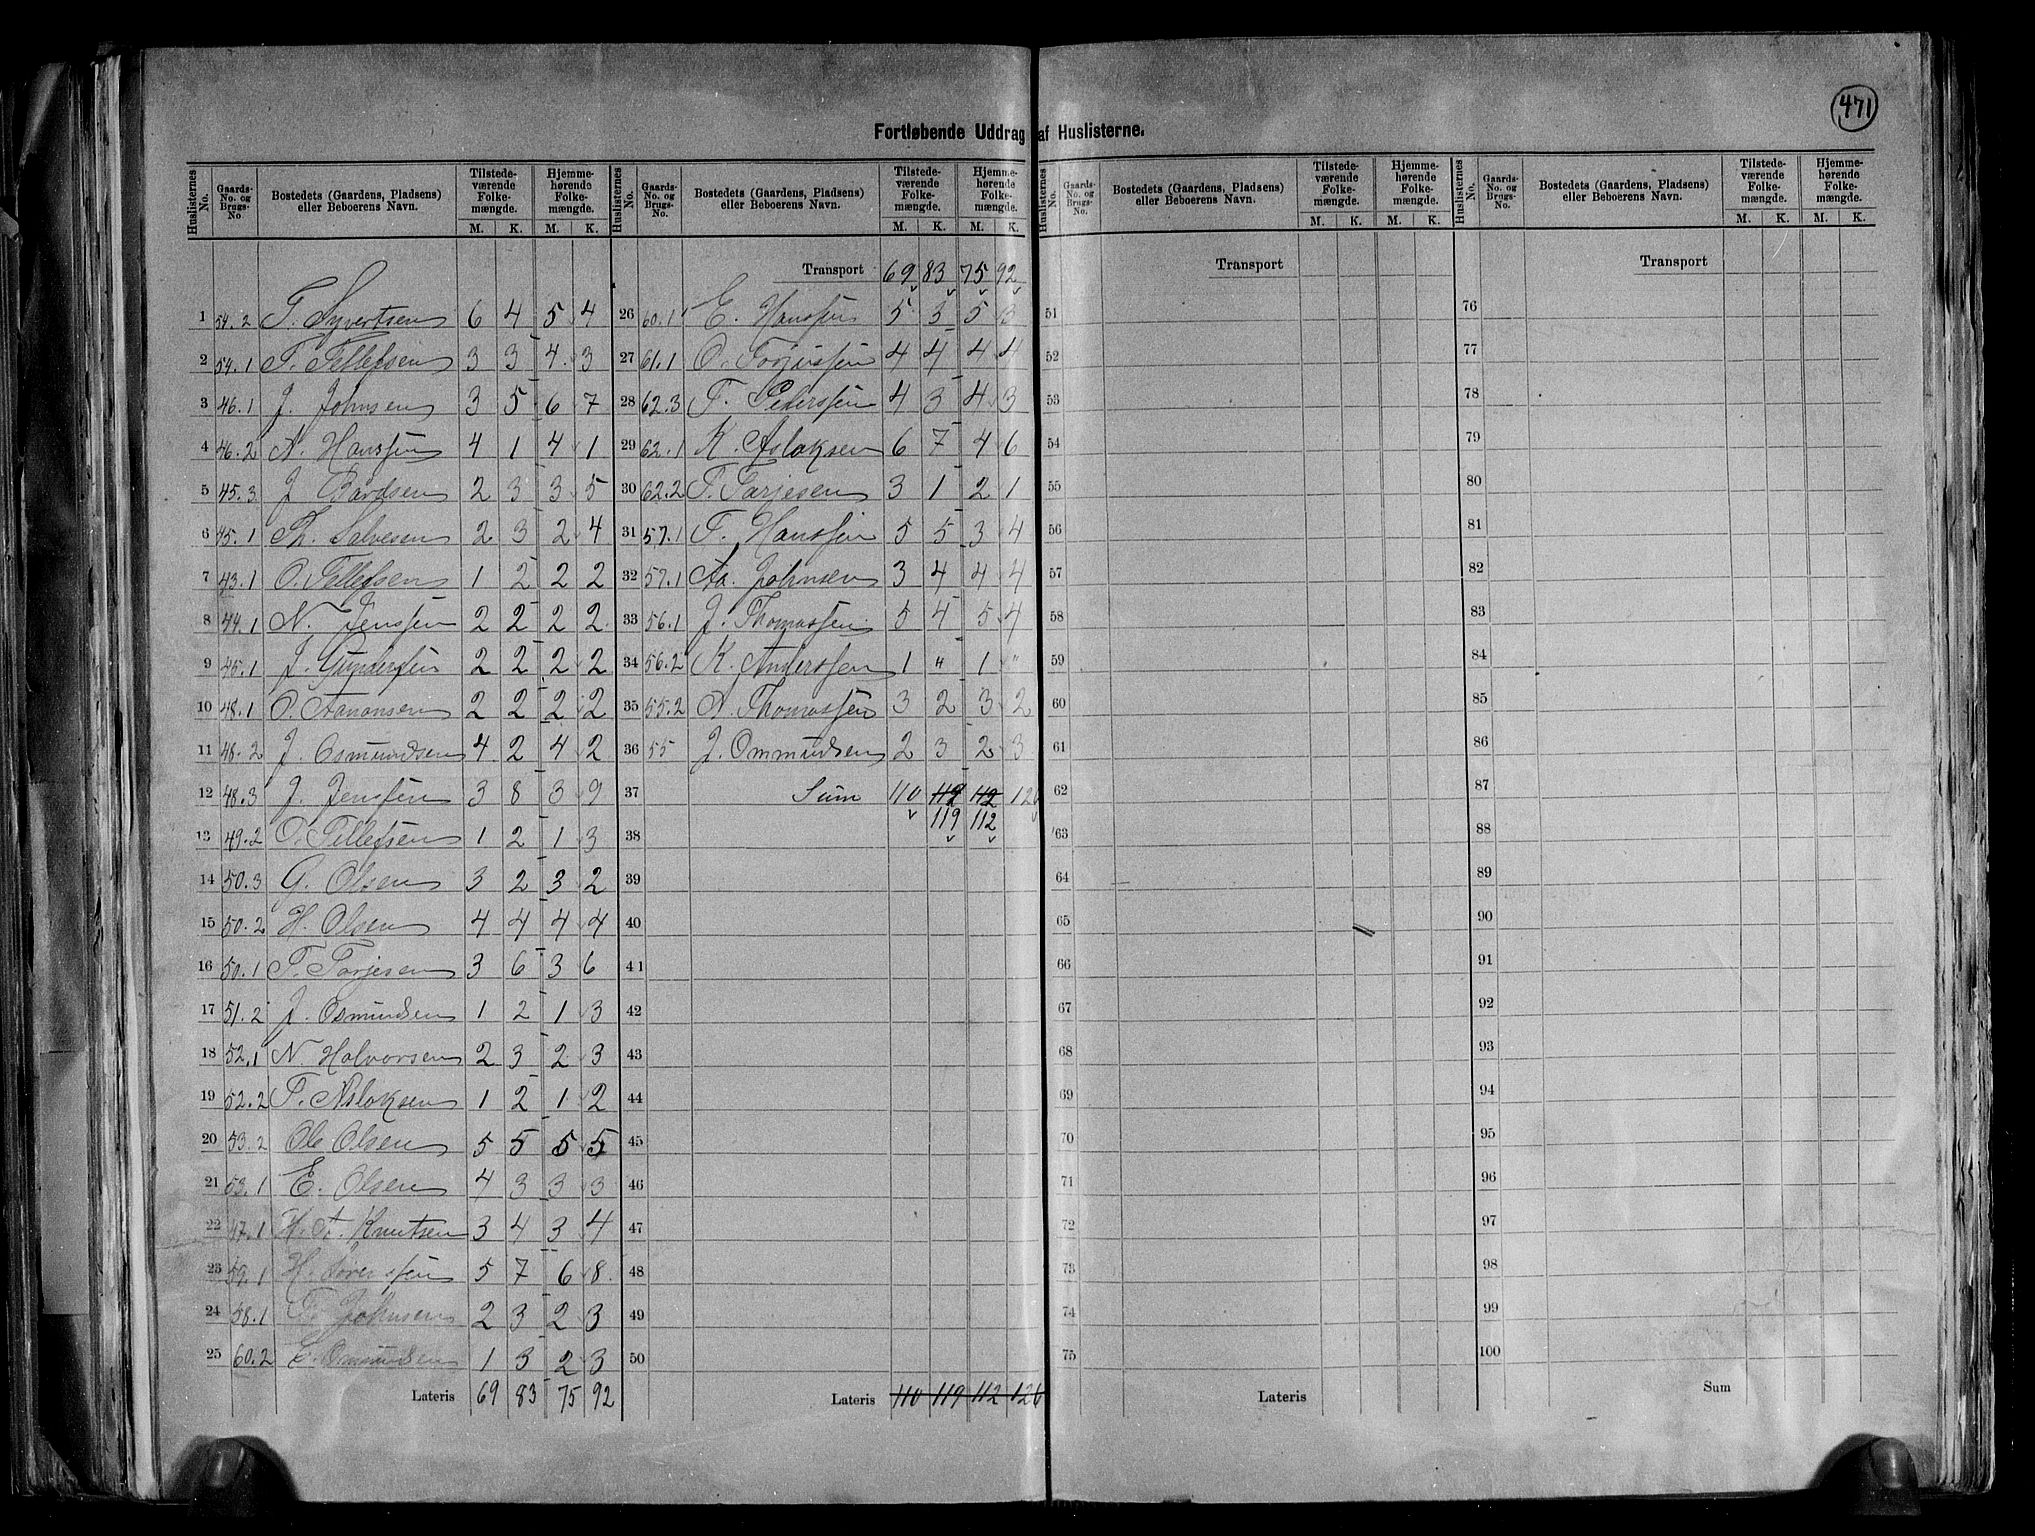 471
Fortløbende Uddrag af Huslisterne.
Huslisternes No. Gaards-No. og Brugs-No. Bostedets (Gaardens, Pladsens) eller Beboerens Navn. Tilstedeværende Folkemængde. M. K. Hjemmehørende Folkemængde. M. K.
1 54.2 T. Syvertsen 6 4 5 4
2 54.1 T. Tellefsen 3 3 4 3
3 46.1 J. Johnsen 3 5 6 7
4 46.2 N. Hanssen 4 1 4 1
5 45.3 J Bårdsen 2 3 3 5
6 45.1 Th. Salvesen 2 3 2 4
7 43.1 O. Tellefsen 1 2 2 2
8 44.1 N. Jenssen 2 2 2 2
9 45.1 J. Gundersen 2 2 2 2
10 48.1 O. Aanonsen 2 2 2 2
11 48.2 J. Osmundsen 4 2 4 2
12 48.3 J. Jenssen 3 8 3 9
13 49.2 O. Tellefsen 1 2 1 3
14 50.3 G. Olsen 3 2 3 2
15 50.2 H. Olsen 4 4 4 4
16 50.1 T. Tarjesen 3 6 3 6
17 51.2 J. Osmundsen 1 2 1 3
18 52.1 N Halvorsen 2 3 2 3
19 52.2 T. Aslaksen 1 2 1 2
20 53.2 Ole Olsen 5 5 5 5
21 53.1 E. Olsen 4 3 3 3
22 47.1 H. A. Knutsen 3 4 3 4
23 59.1 H. 5 7 6 8
24 58.1 Johnsen 2 3 2 3
25 60.2 Ommundsen 1 3 2 3
Lateris 69 83 75 92
Huslisternes No. Gaards-No. og Brugs-No. Bostedets (Gaardens, Pladsens) eller Beboerens Navn. Tilstedeværende Folkemængde. M. K. Hjemmehørende Folkemængde. M. K.
Transport 69 83 75 92
26 60.1 E. Hanssen 5 3 5 3
27 61.1 O. Torjussen 4 4 4 4
28 62.3 T. Pederssen 4 3 4 3
29 62.1 K. Aslaksen 6 7 4 6
30 62.2 T. Tarjesen 3 1 2 1
31 57.1 T. Hanssen 5 5 3 4
32 57.1 Aa. Johnsen 3 4 4 4
33 56.1 J. Thomassen 5 4 5 4
34 56.2 K. Anderssen 1 " 1 "
35 55.2 N. Thomassen 3 2 3 2
36 55 J. Ommundsen 2 3 2 3
37 Sum 110 112 112 126
38 119 112
39
40
41
42
43
44
45
46
47
48
49
50
Lateris 110 119 112 126
Huslisternes No. Gaards-No. og Brugs-No. Bostedets (Gaardens, Pladsens) eller Beboerens Navn. Tilstedeværende Folkemængde. M. K. Hjemmehørende Folkemængde. M. K.
Transport
51
52
53
54
55
56
57
58
59
60
61
62
63
64
65
66
67
68
69
70
71
72
73
74
75
Lateris
Huslisternes No. Gaards-No. og Brugs-No. Bostedets (Gaardens, Pladsens) eller Beboerens Navn. Tilstedeværende Folkemængde. M. K. Hjemmehørende Folkemængde. M. K.
Transport
76
77
78
79
80
81
82
83
84
85
86
87
88
89
90
91
92
93
94
95
96
97
98
99
100
Sum